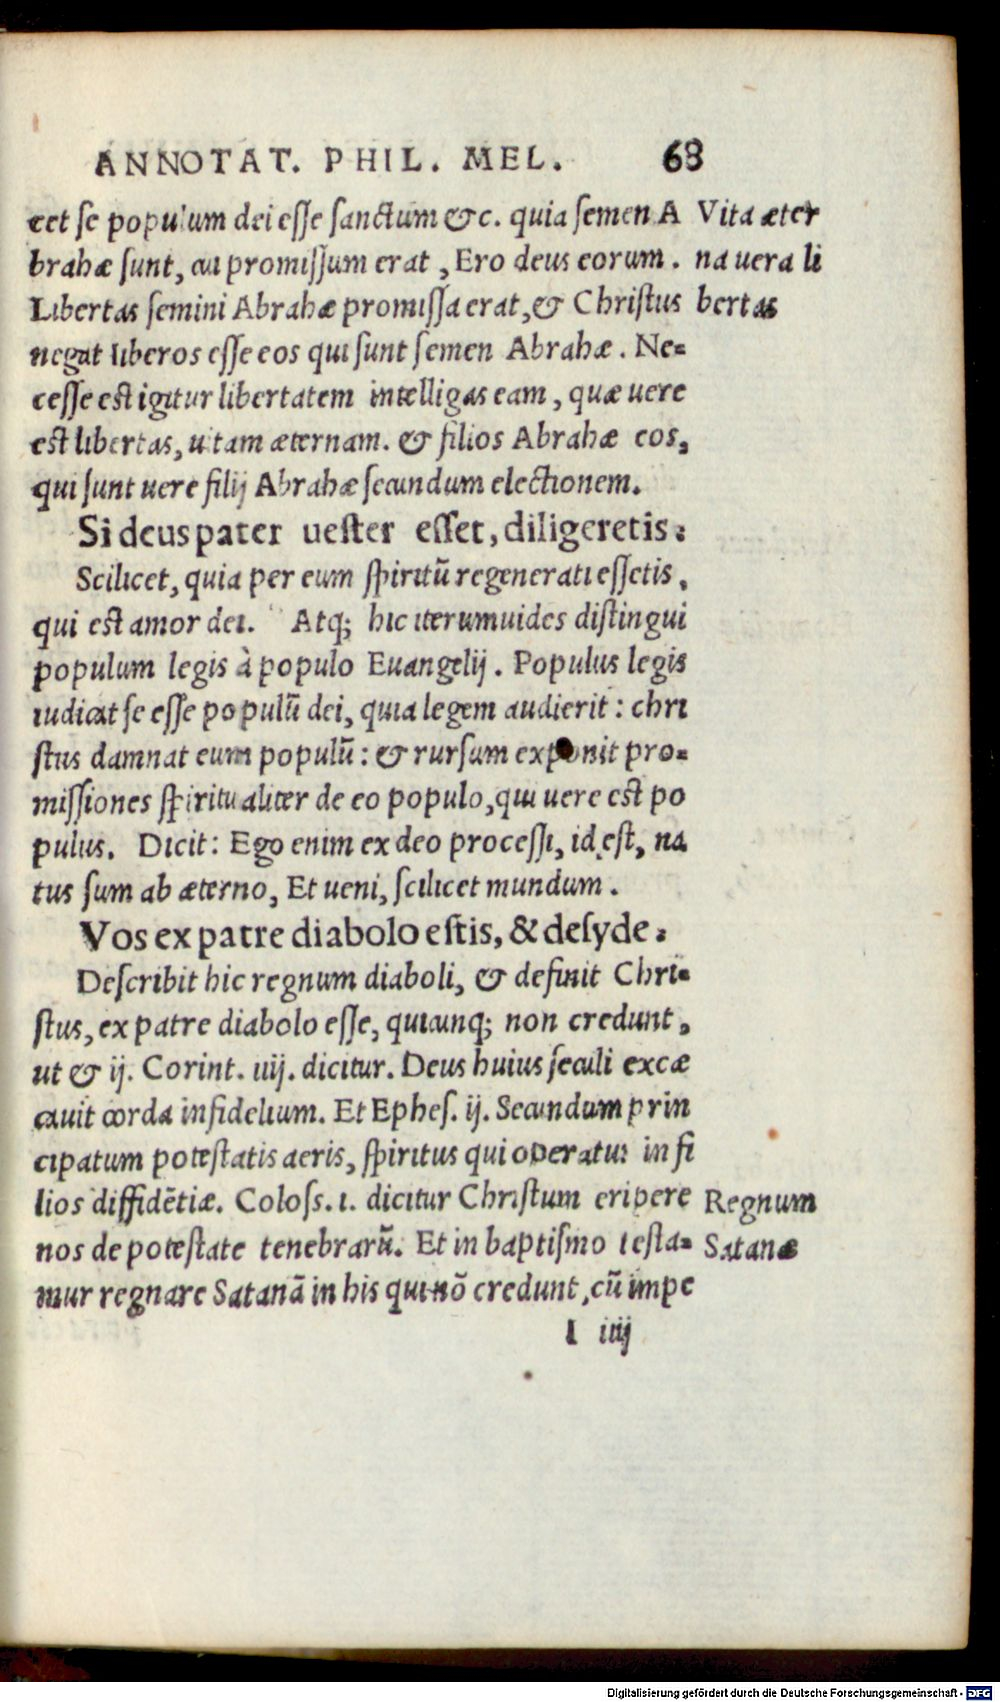 ANNOTAT. PHIL. MEL. 68
cet se populum dei esse sanctum &c. quia semen A
brahæ sunt, cui promissum erat, Ero deus eorum.
Libertas semini Abrahæ promissa erat, & Christus
negat liberos esse eos qui sunt semen Abrahæ. Ne=
cesse est igitur libertatem intelligas eam, quæ uere
est libertas, uitam æternam. & filios Abrahæ eos,
qui sunt uere filij Abrahæ secundum electionem.
Vita æter
na uera li
bertas
Si deus pater uester esset, diligeretis.
Scilicet, quia per eum spiritũ regenerati essetis,
qui est amor dei. Atq; hic iterum uides distingui
populum legis à populo Euangelij. Populus legis
iudicat se esse populũ dei, quia legem audierit: chri
stus damnat eum populũ: & rursum exponit pro=
missiones spiritualiter de eo populo, qui uere est po
pulus. Dicit: Ego enim ex deo processi, id est, na
tus sum ab æterno, Et ueni, scilicet mundum.
Vos ex patre diabolo estis, & desyde.
Describit hic regnum diaboli, & definit Chri=
stus, ex patre diabolo esse, quicunq; non credunt,
ut & ij. Corint. iiij. dicitur. Deus huius seculi excæ
cauit corda infidelium. Et Ephes. ij. Secundum prin
cipatum potestatis aeris, spiritus qui operatur in fi
lios diffidẽtiæ. Coloss. 1. dicitur Christum eripere
nos de potestate tenebrarũ. Et in baptismo testa=
mur regnare Satanã in his qui nõ credunt, cũ impe
Regnum
Satanæ
I iiij
Digitalisierung gefördert durch die Deutsche Forschungsgemeinschaft - DFG